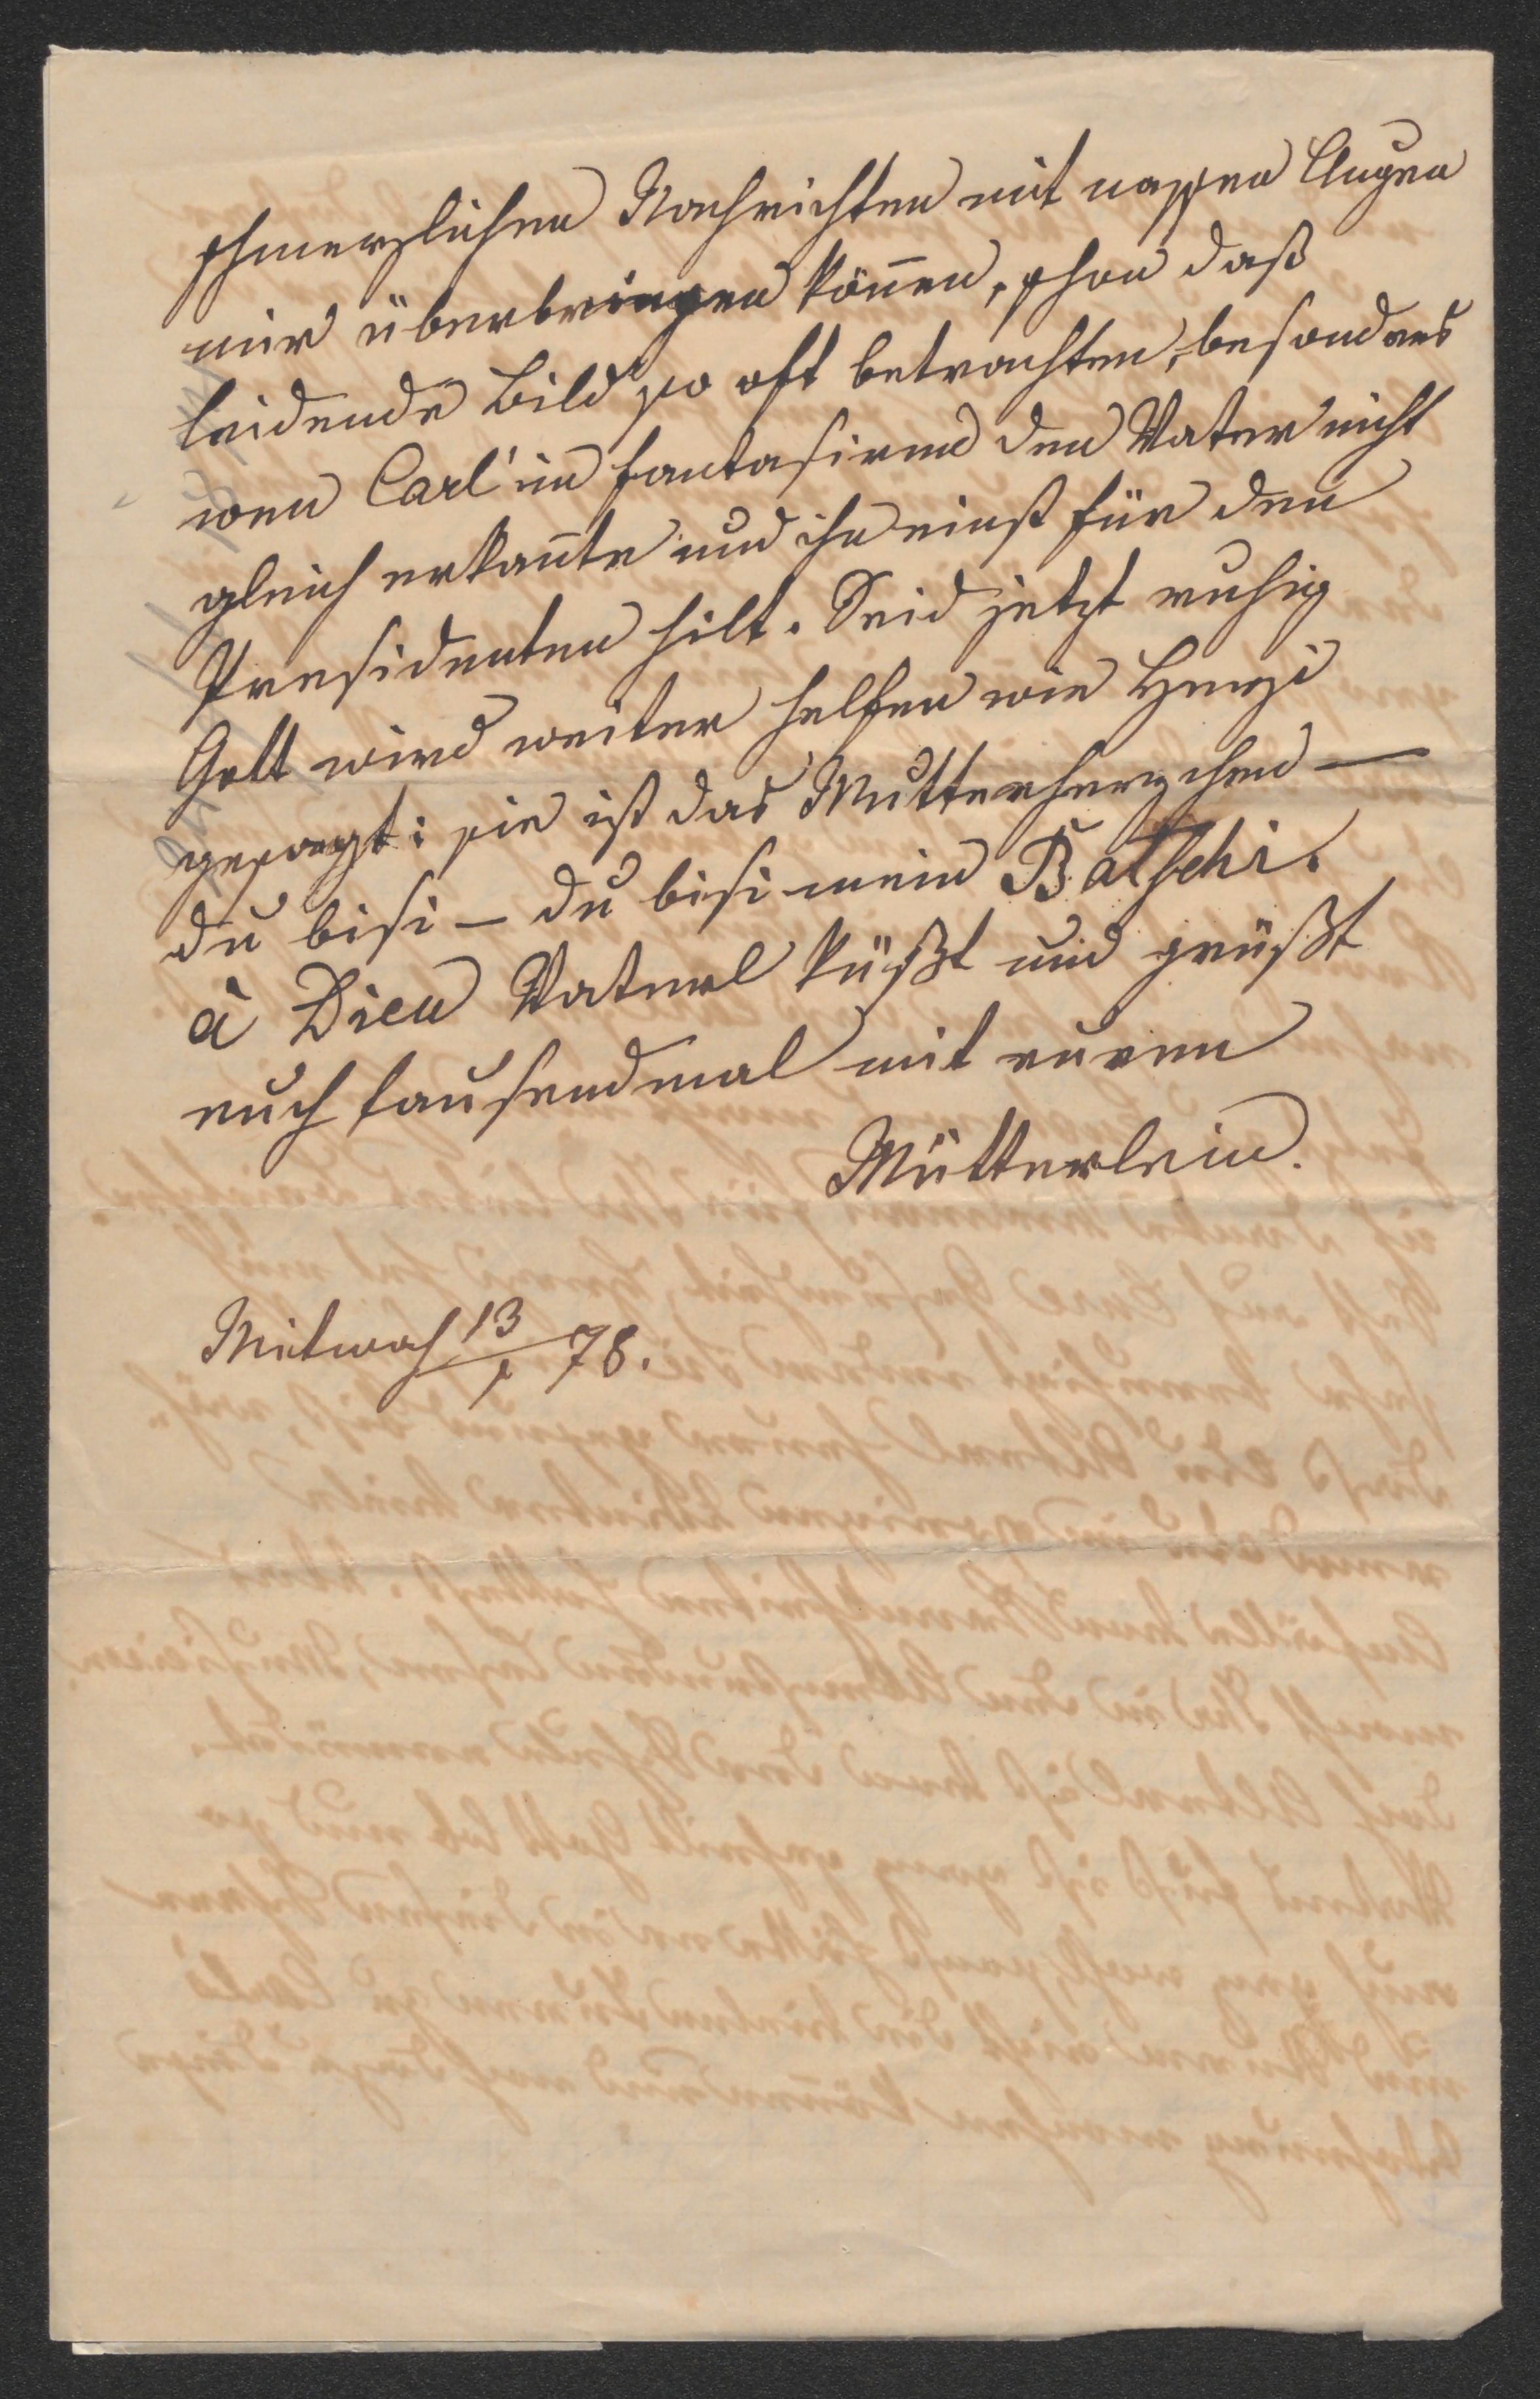 schmerzlichen Nachrichten mit nassen Augen
mir überbringen können, schon daß
leidende Bild so oft betrachten, besonders
wen Carl im fantasiren den Vater nicht
gleich erkan̄te und ihn einst für den
Presidenten hilt. Seid jetzt ruhig
Gott wird weiter helfen wie
gesagt: sie ist das Mutterherzchen —
du bisi — du bisi mein Batschi.
à Dieu Vaterl küßt und grüßt
euch tausendmal mit euren
Mütterlein.
Mitwoch 13/ 78.